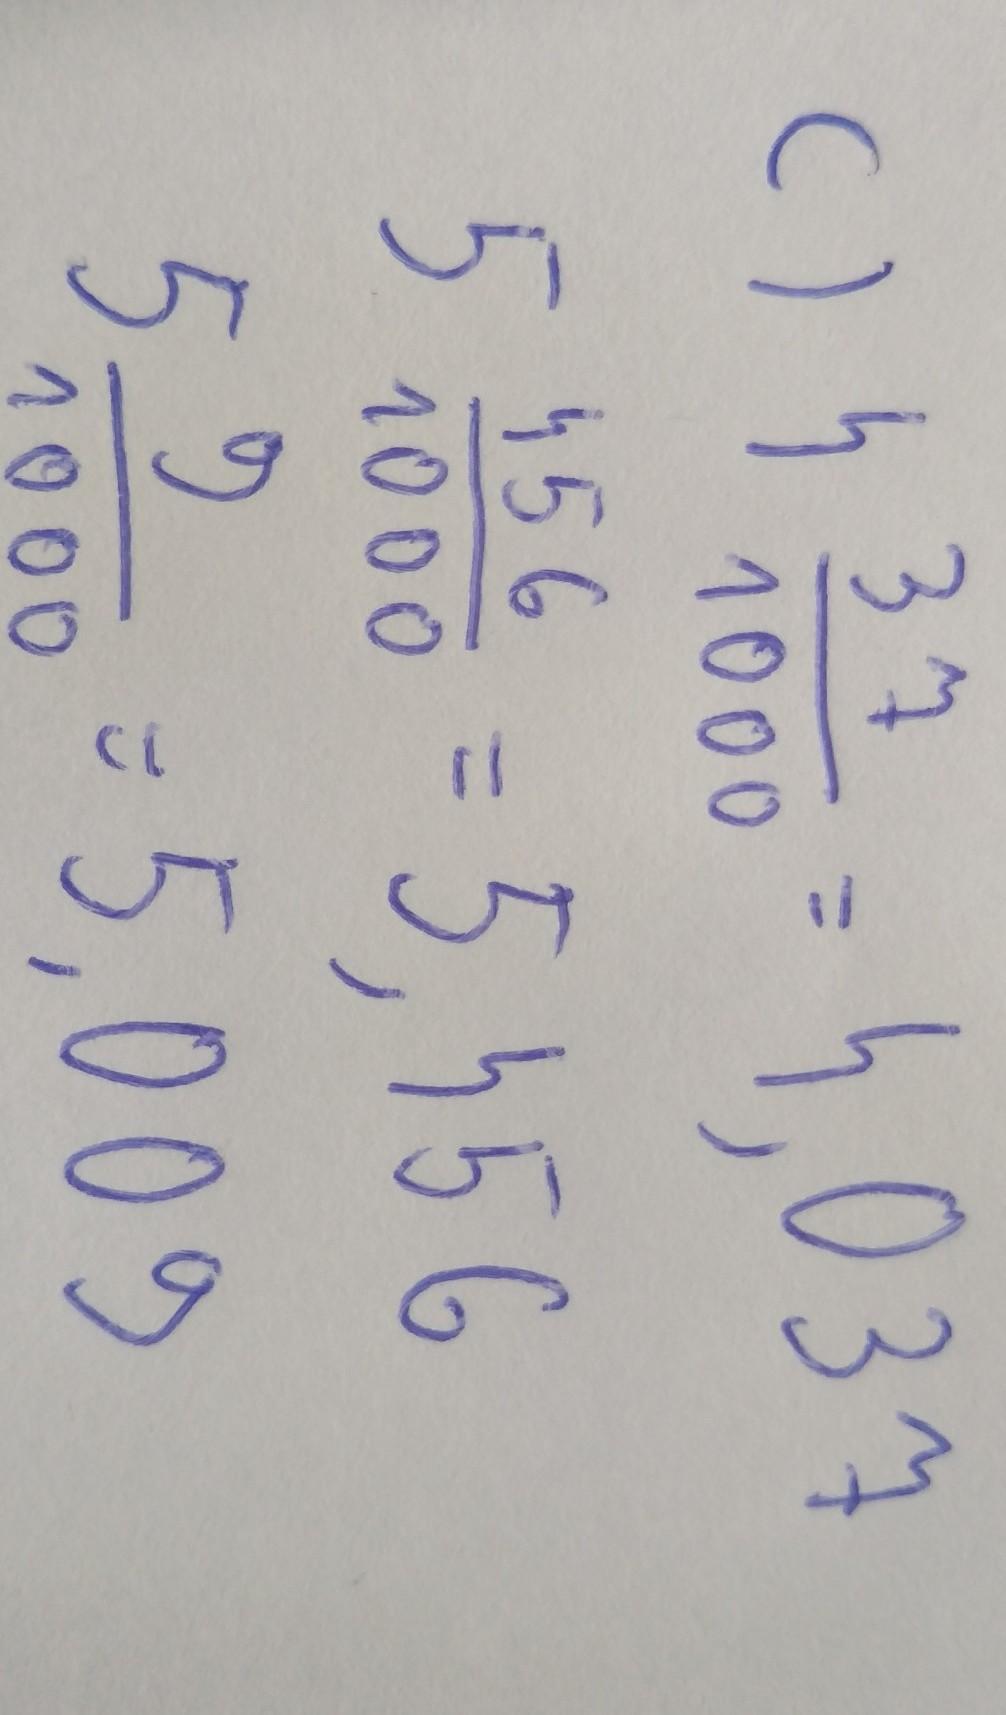 c) 4 37/1000 = 4,037
5 456/1000 = 5,456
5 9/1000 = 5,009